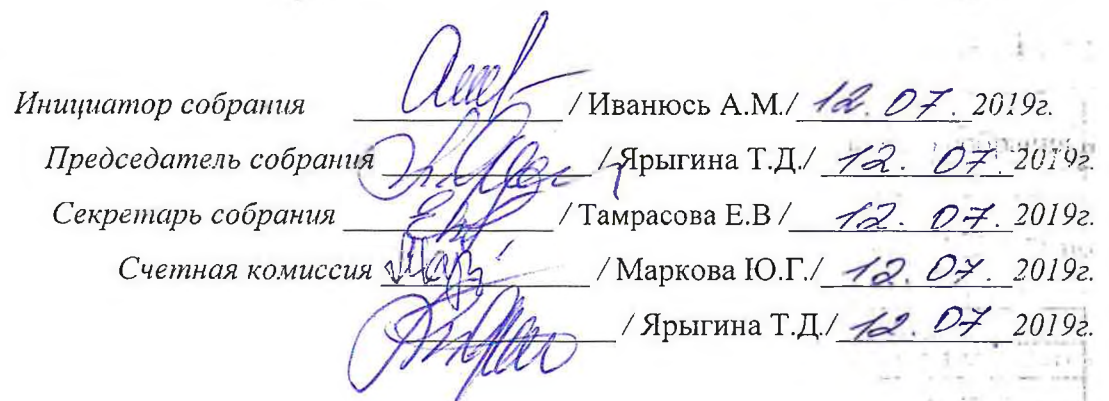 Инициатор собрания / Иванюсь А.М./ 12. 07. 2019г.
Председатель собрания / Ярыгина Т.Д./ 12. 07. 2019г.
Секретарь собрания / Тамрасова Е.В / 12. 07. 2019г.
Счетная комиссия / Маркова Ю.Г./ 12. 07. 2019г.
/ Ярыгина Т.Д./ 12. 07 2019г.